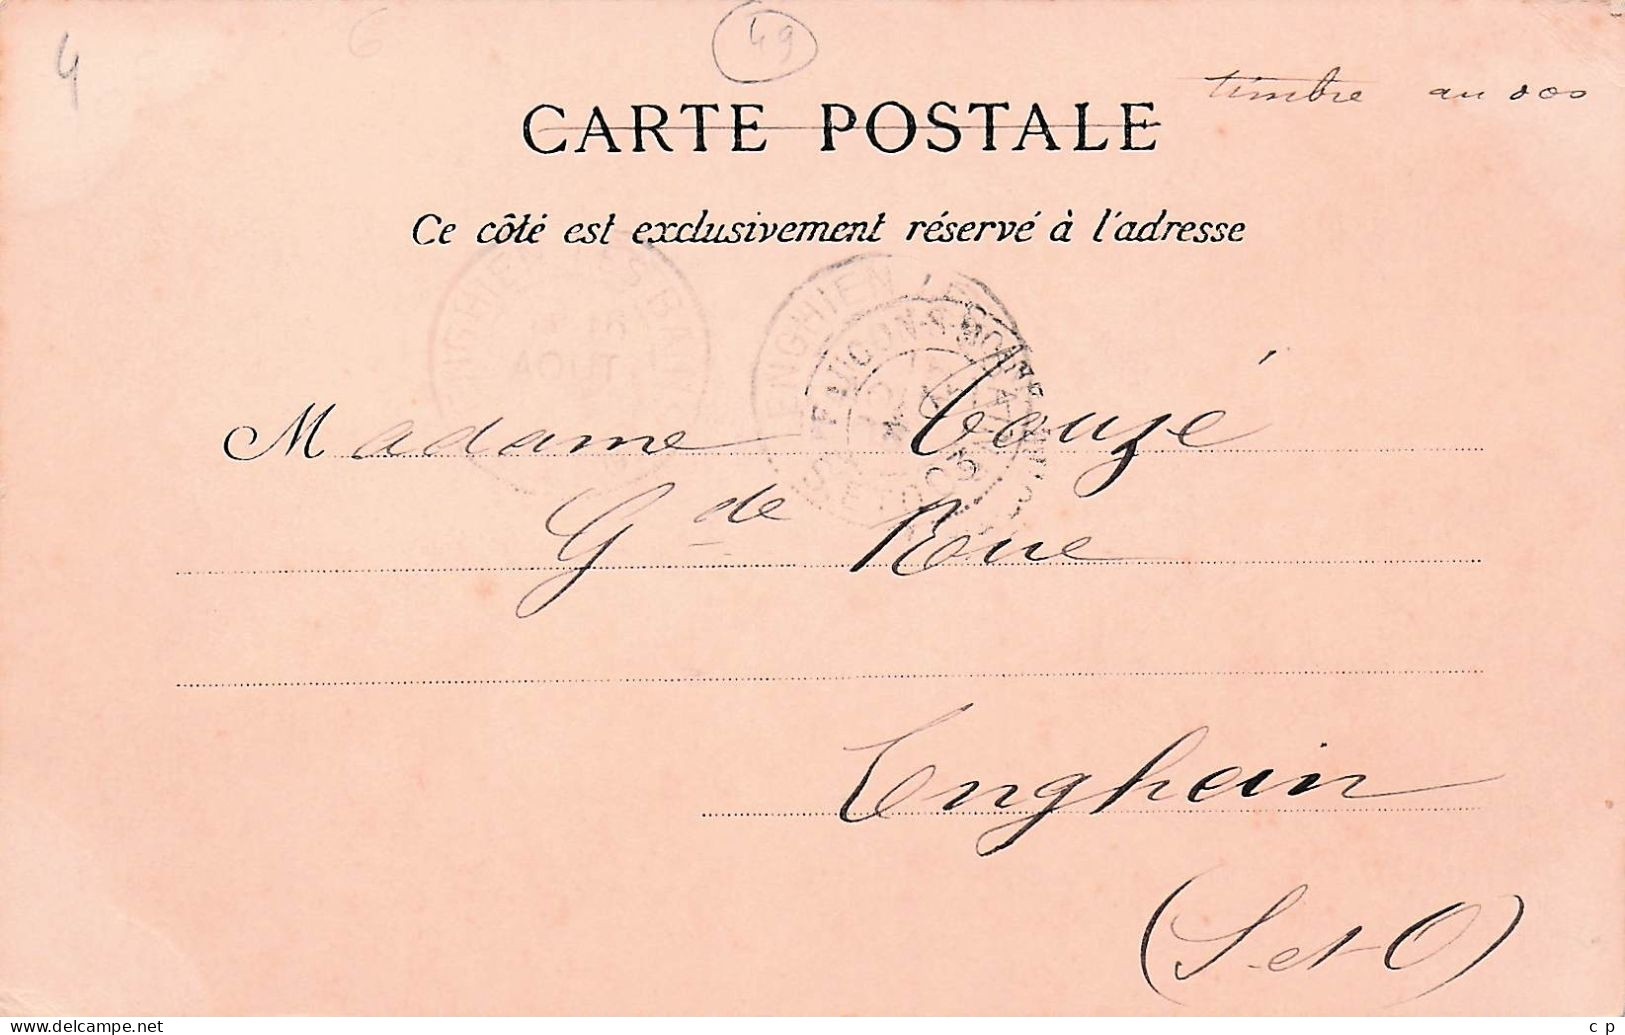 4
6
49
timbre au dos
CARTE POSTALE
Ce côté est exclusivement réservé à l'adresse
ENGHIEN LES BA
AOUT
ENGHIEN LE
Madame Touzé
Gde Rue
Enghein
(S-et-O)
www.delcampe.net
c p